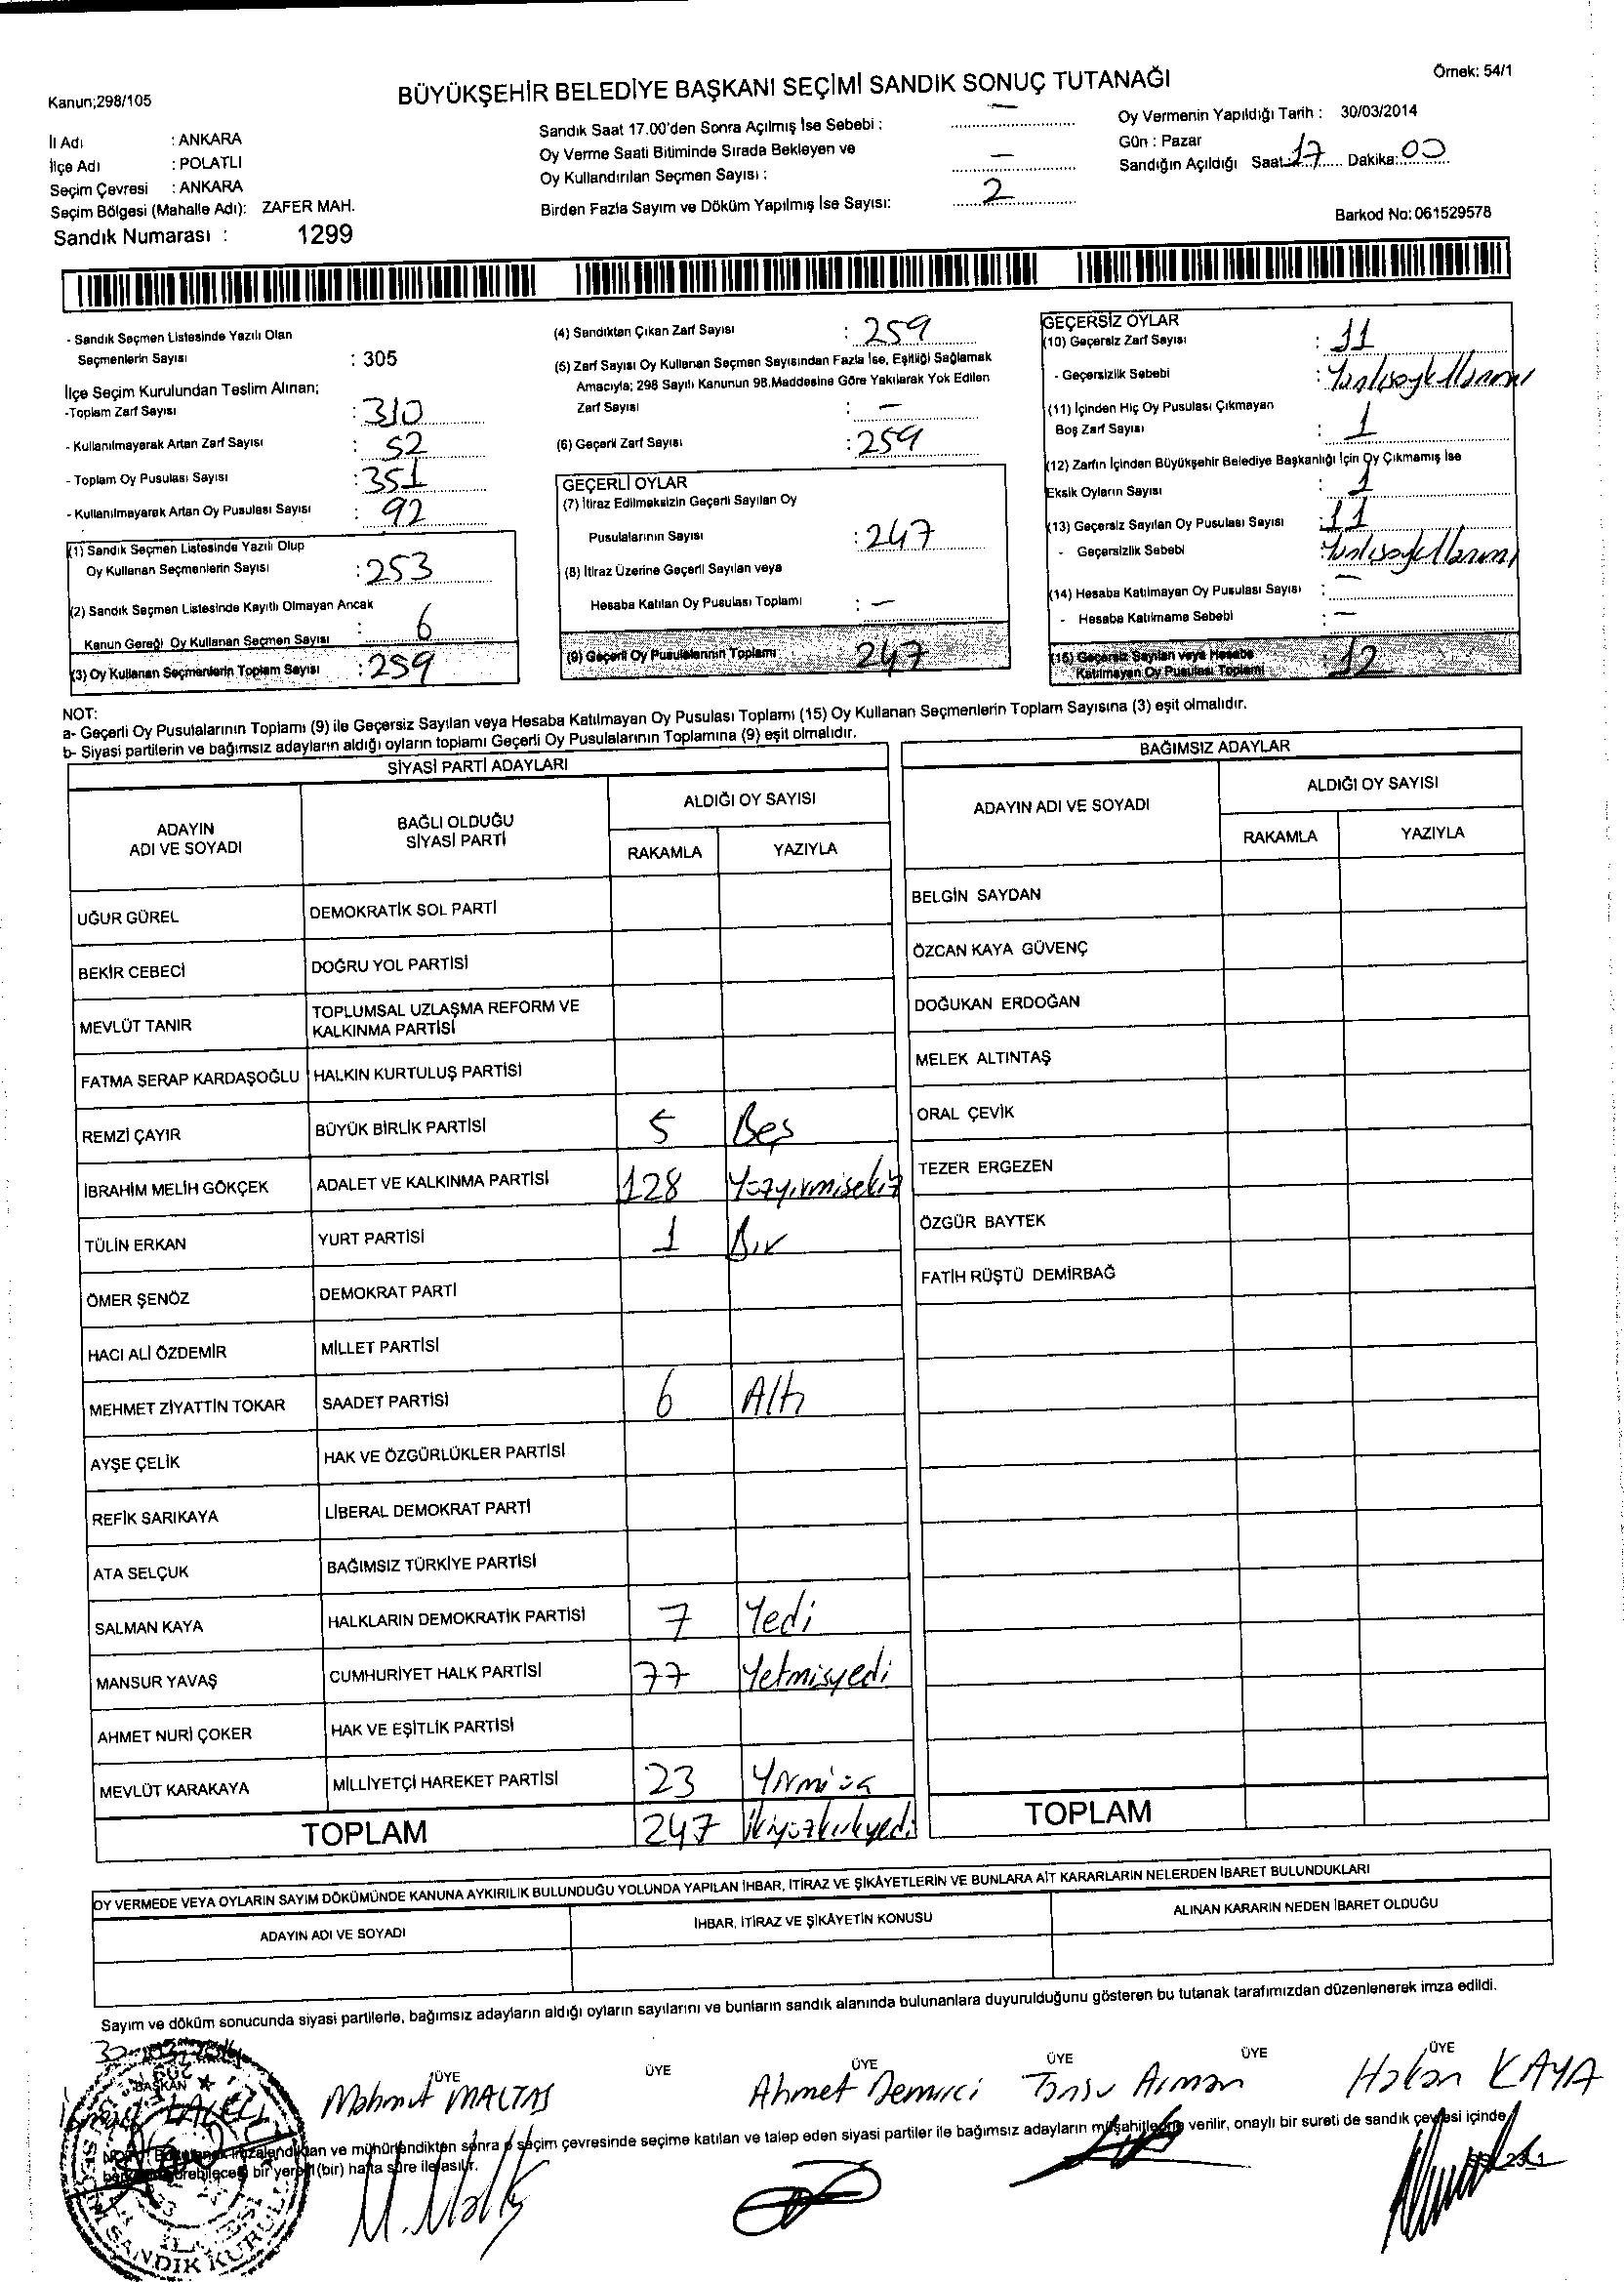 Kanun;298/105
BÜYÜKŞEHİR BELEDİYE BAŞKANI SEÇİMİ SANDIK SONUÇ TUTANAĞI
Örnek: 54/1
İl Adı : ANKARA
İlçe Adı : POLATLI
Seçim Çevresi : ANKARA
Seçim Bölgesi (Mahalle Adı): ZAFER MAH.
Sandık Numarası : 1299
Sandık Saat 17.00'den Sonra Açılmış İse Sebebi : —
Oy Verme Saati Bitiminde Sırada Bekleyen ve
Oy Kullandırılan Seçmen Sayısı : —
Birden Fazla Sayım ve Döküm Yapılmış İse Sayısı: 2
Oy Vermenin Yapıldığı Tarih : 30/03/2014
Gün : Pazar
Sandığın Açıldığı Saat: 17 Dakika: 00
Barkod No: 061529578
- Sandık Seçmen Listesinde Yazılı Olan
Seçmenlerin Sayısı : 305
İlçe Seçim Kurulundan Teslim Alınan;
-Toplam Zarf Sayısı : 310
- Kullanılmayarak Artan Zarf Sayısı : 52
- Toplam Oy Pusulası Sayısı : 351
- Kullanılmayarak Artan Oy Pusulası Sayısı : 92
(1) Sandık Seçmen Listesinde Yazılı Olup
Oy Kullanan Seçmenlerin Sayısı : 253
(2) Sandık Seçmen Listesinde Kayıtlı Olmayan Ancak
Kanun Gereği Oy Kullanan Seçmen Sayısı : 6
(3) Oy Kullanan Seçmenlerin Toplam Sayısı : 259
(4) Sandıktan Çıkan Zarf Sayısı : 259
(5) Zarf Sayısı Oy Kullanan Seçmen Sayısından Fazla İse, Eşitliği Sağlamak
Amacıyla; 298 Sayılı Kanunun 98.Maddesine Göre Yakılarak Yok Edilen
Zarf Sayısı : —
(6) Geçerli Zarf Sayısı : 259
GEÇERLİ OYLAR
(7) İtiraz Edilmeksizin Geçerli Sayılan Oy
Pusulalarının Sayısı : 247
(8) İtiraz Üzerine Geçerli Sayılan veya
Hesaba Katılan Oy Pusulası Toplamı : —
(9) Geçerli Oy Pusulalarının Toplamı : 247
GEÇERSİZ OYLAR
(10) Geçersiz Zarf Sayısı : 11
- Geçersizlik Sebebi :
(11) İçinden Hiç Oy Pusulası Çıkmayan
Boş Zarf Sayısı : 1
(12) Zarfın İçinden Büyükşehir Belediye Başkanlığı İçin Oy Çıkmamış İse
Eksik Oyların Sayısı : 1
(13) Geçersiz Sayılan Oy Pusulası Sayısı : 11
- Geçersizlik Sebebi :
(14) Hesaba Katılmayan Oy Pusulası Sayısı : —
- Hesaba Katılmama Sebebi : —
(15) Geçersiz Sayılan veya Hesaba
Katılmayan Oy Pusulası Toplamı : 12
NOT:
a- Geçerli Oy Pusulalarının Toplamı (9) ile Geçersiz Sayılan veya Hesaba Katılmayan Oy Pusulası Toplamı (15) Oy Kullanan Seçmenlerin Toplam Sayısına (3) eşit olmalıdır.
b- Siyasi partilerin ve bağımsız adayların aldığı oyların toplamı Geçerli Oy Pusulalarının Toplamına (9) eşit olmalıdır.
SİYASİ PARTİ ADAYLARI
ADAYIN
ADI VE SOYADI
BAĞLI OLDUĞU
SİYASİ PARTİ
ALDIĞI OY SAYISI
RAKAMLA YAZIYLA
UĞUR GÜREL DEMOKRATİK SOL PARTİ
BEKİR CEBECİ DOĞRU YOL PARTİSİ
MEVLÜT TANIR TOPLUMSAL UZLAŞMA REFORM VE
KALKINMA PARTİSİ
FATMA SERAP KARDAŞOĞLU HALKIN KURTULUŞ PARTİSİ
REMZİ ÇAYIR BÜYÜK BİRLİK PARTİSİ 5 Beş
İBRAHİM MELİH GÖKÇEK ADALET VE KALKINMA PARTİSİ 128 Yüzyirmisekiz
TÜLİN ERKAN YURT PARTİSİ 1 Bir
ÖMER ŞENÖZ DEMOKRAT PARTİ
HACI ALİ ÖZDEMİR MİLLET PARTİSİ
MEHMET ZİYATTİN TOKAR SAADET PARTİSİ 6 Altı
AYŞE ÇELİK HAK VE ÖZGÜRLÜKLER PARTİSİ
REFİK SARIKAYA LİBERAL DEMOKRAT PARTİ
ATA SELÇUK BAĞIMSIZ TÜRKİYE PARTİSİ
SALMAN KAYA HALKLARIN DEMOKRATİK PARTİSİ 7 Yedi
MANSUR YAVAŞ CUMHURİYET HALK PARTİSİ 77 Yetmişyedi
AHMET NURİ ÇOKER HAK VE EŞİTLİK PARTİSİ
MEVLÜT KARAKAYA MİLLİYETÇİ HAREKET PARTİSİ 23 Yirmiüç
TOPLAM 247 İkiyüzkırkyedi
BAĞIMSIZ ADAYLAR
ADAYIN ADI VE SOYADI
ALDIĞI OY SAYISI
RAKAMLA YAZIYLA
BELGİN SAYDAN
ÖZCAN KAYA GÜVENÇ
DOĞUKAN ERDOĞAN
MELEK ALTINTAŞ
ORAL ÇEVİK
TEZER ERGEZEN
ÖZGÜR BAYTEK
FATİH RÜŞTÜ DEMİRBAĞ
TOPLAM
OY VERMEDE VEYA OYLARIN SAYIM DÖKÜMÜNDE KANUNA AYKIRILIK BULUNDUĞU YOLUNDA YAPILAN İHBAR, İTİRAZ VE ŞİKÂYETLERİN VE BUNLARA AİT KARARLARIN NELERDEN İBARET BULUNDUKLARI
ADAYIN ADI VE SOYADI İHBAR, İTİRAZ VE ŞİKÂYETİN KONUSU ALINAN KARARIN NEDEN İBARET OLDUĞU
Sayım ve döküm sonucunda siyasi partilerle, bağımsız adayların aldığı oyların sayılarını ve bunların sandık alanında bulunanlara duyurulduğunu gösteren bu tutanak tarafımızdan düzenlenerek imza edildi.
BAŞKAN ÜYE ÜYE ÜYE ÜYE ÜYE ÜYE
Mahmut MALTAŞ Ahmet Demirci Tansu Arman Hakan KAYA
ve mühürlendikten sonra o seçim çevresinde seçime katılan ve talep eden siyasi partiler ile bağımsız adayların müşahitlerine verilir, onaylı bir sureti de sandık çevresi içinde
bir yere (bir) hafta süre ile asılır.
M. Maltaş
SANDIK KURULU